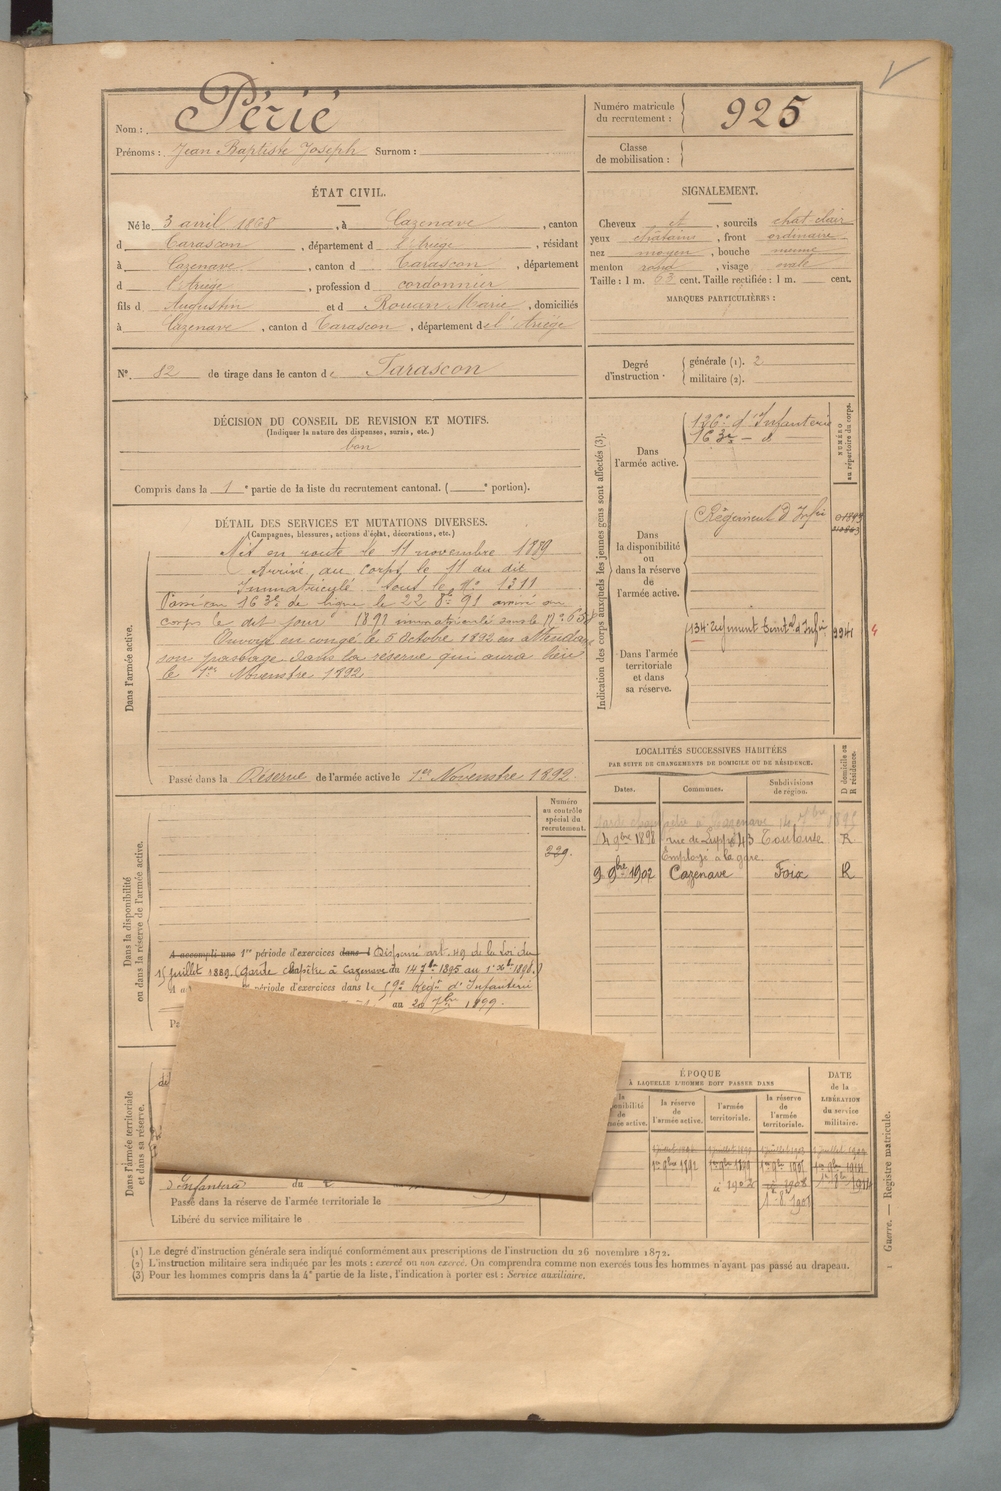 Nom : Périé
Prénoms : Jean Baptiste Joseph Surnom :
Numéro matricule du recrutement : 925
Classe de mobilisation :
ÉTAT CIVIL.
Né le 3 avril 1868, à Cazenave, canton
d Tarascon, département d l'Ariège, résidant
à Cazenave, canton d Tarascon, département
d l'Ariège, profession d cordonnier
fils d Augustin et d Rouan Marie, domiciliés
à Cazenave, canton d Tarascon, département de l'Ariège
N° 82 de tirage dans le canton de Tarascon
SIGNALEMENT.
Cheveux et, sourcils chat clair
yeux châtains, front ordinaire
nez moyen, bouche
menton rond, visage ovale
Taille : 1 m. 63 cent. Taille rectifiée : 1 m. cent.
MARQUES PARTICULIÈRES :
Degré d'instruction : générale (1). 2
militaire (2).
DÉCISION DU CONSEIL DE REVISION ET MOTIFS.
(Indiquer la nature des dispenses, sursis, etc.)
bon
Compris dans la 1e partie de la liste du recrutement cantonal. (e portion).
DÉTAIL DES SERVICES ET MUTATIONS DIVERSES.
(Campagnes, blessures, actions d'éclat, décorations, etc.)
Dans l'armée active.
Mis en route le 11 novembre 1889
Arrivé au corps le 11 du dit
Immatriculé sous le N° 1311
Passé au 163e de ligne le 22 8bre 91 arrivé au
corps le dit jour 1891 immatriculé sous le N°
Envoyé en congé le 5 Octobre 1892 en attendant
son passage dans la réserve qui aura lieu
le 1er Novembre 1892
Passé dans la Réserve de l'armée active le 1er Novembre 1892
Indication des corps auxquels les jeunes gens sont affectés (3).
NUMÉRO au répertoire du corps.
Dans l'armée active.
126e d'Infanterie
163e - d
Dans la disponibilité ou dans la réserve de l'armée active.
Régiment d'Infie
Dans l'armée territoriale et dans sa réserve.
134e régiment territal d'Infie
LOCALITÉS SUCCESSIVES HABITÉES
PAR SUITE DE CHANGEMENTS DE DOMICILE OU DE RÉSIDENCE.
Dates. Communes. Subdivisions de région. D domicile ou R résidence.
9bre 1898 rue de 43 Toulouse R
Employé à la gare
9 9bre 1902 Cazenave Foix R
Dans la disponibilité ou dans la réserve de l'armée active.
Numéro au contrôle spécial du recrutement.
229.
A accompli une 1re période d'exercices dans l Dispensé art. 49 de la Loi du
15 juillet 1889. (Garde champêtre à Cazenave du 14 7bre 1895 au
période d'exercices dans le 59e Régt d'Infanterie
au 20 7bre 1899.
Dans l'armée territoriale et dans sa réserve.
d'Infanterie du 2
Passé dans la réserve de l'armée territoriale le
Libéré du service militaire le
ÉPOQUE
À LAQUELLE L'HOMME DOIT PASSER DANS
la réserve de l'armée active.
l'armée territoriale.
la réserve de l'armée territoriale.
DATE de la LIBÉRATION du service militaire.
1er 9bre 1892 1er 9bre 1899
(1) Le degré d'instruction générale sera indiqué conformément aux prescriptions de l'instruction du 26 novembre 1872.
(2) L'instruction militaire sera indiquée par les mots : exercé ou non exercé. On comprendra comme non exercés tous les hommes n'ayant pas passé au drapeau.
(3) Pour les hommes compris dans la 4e partie de la liste, l'indication à porter est : Service auxiliaire.
Guerre. — Registre matricule.